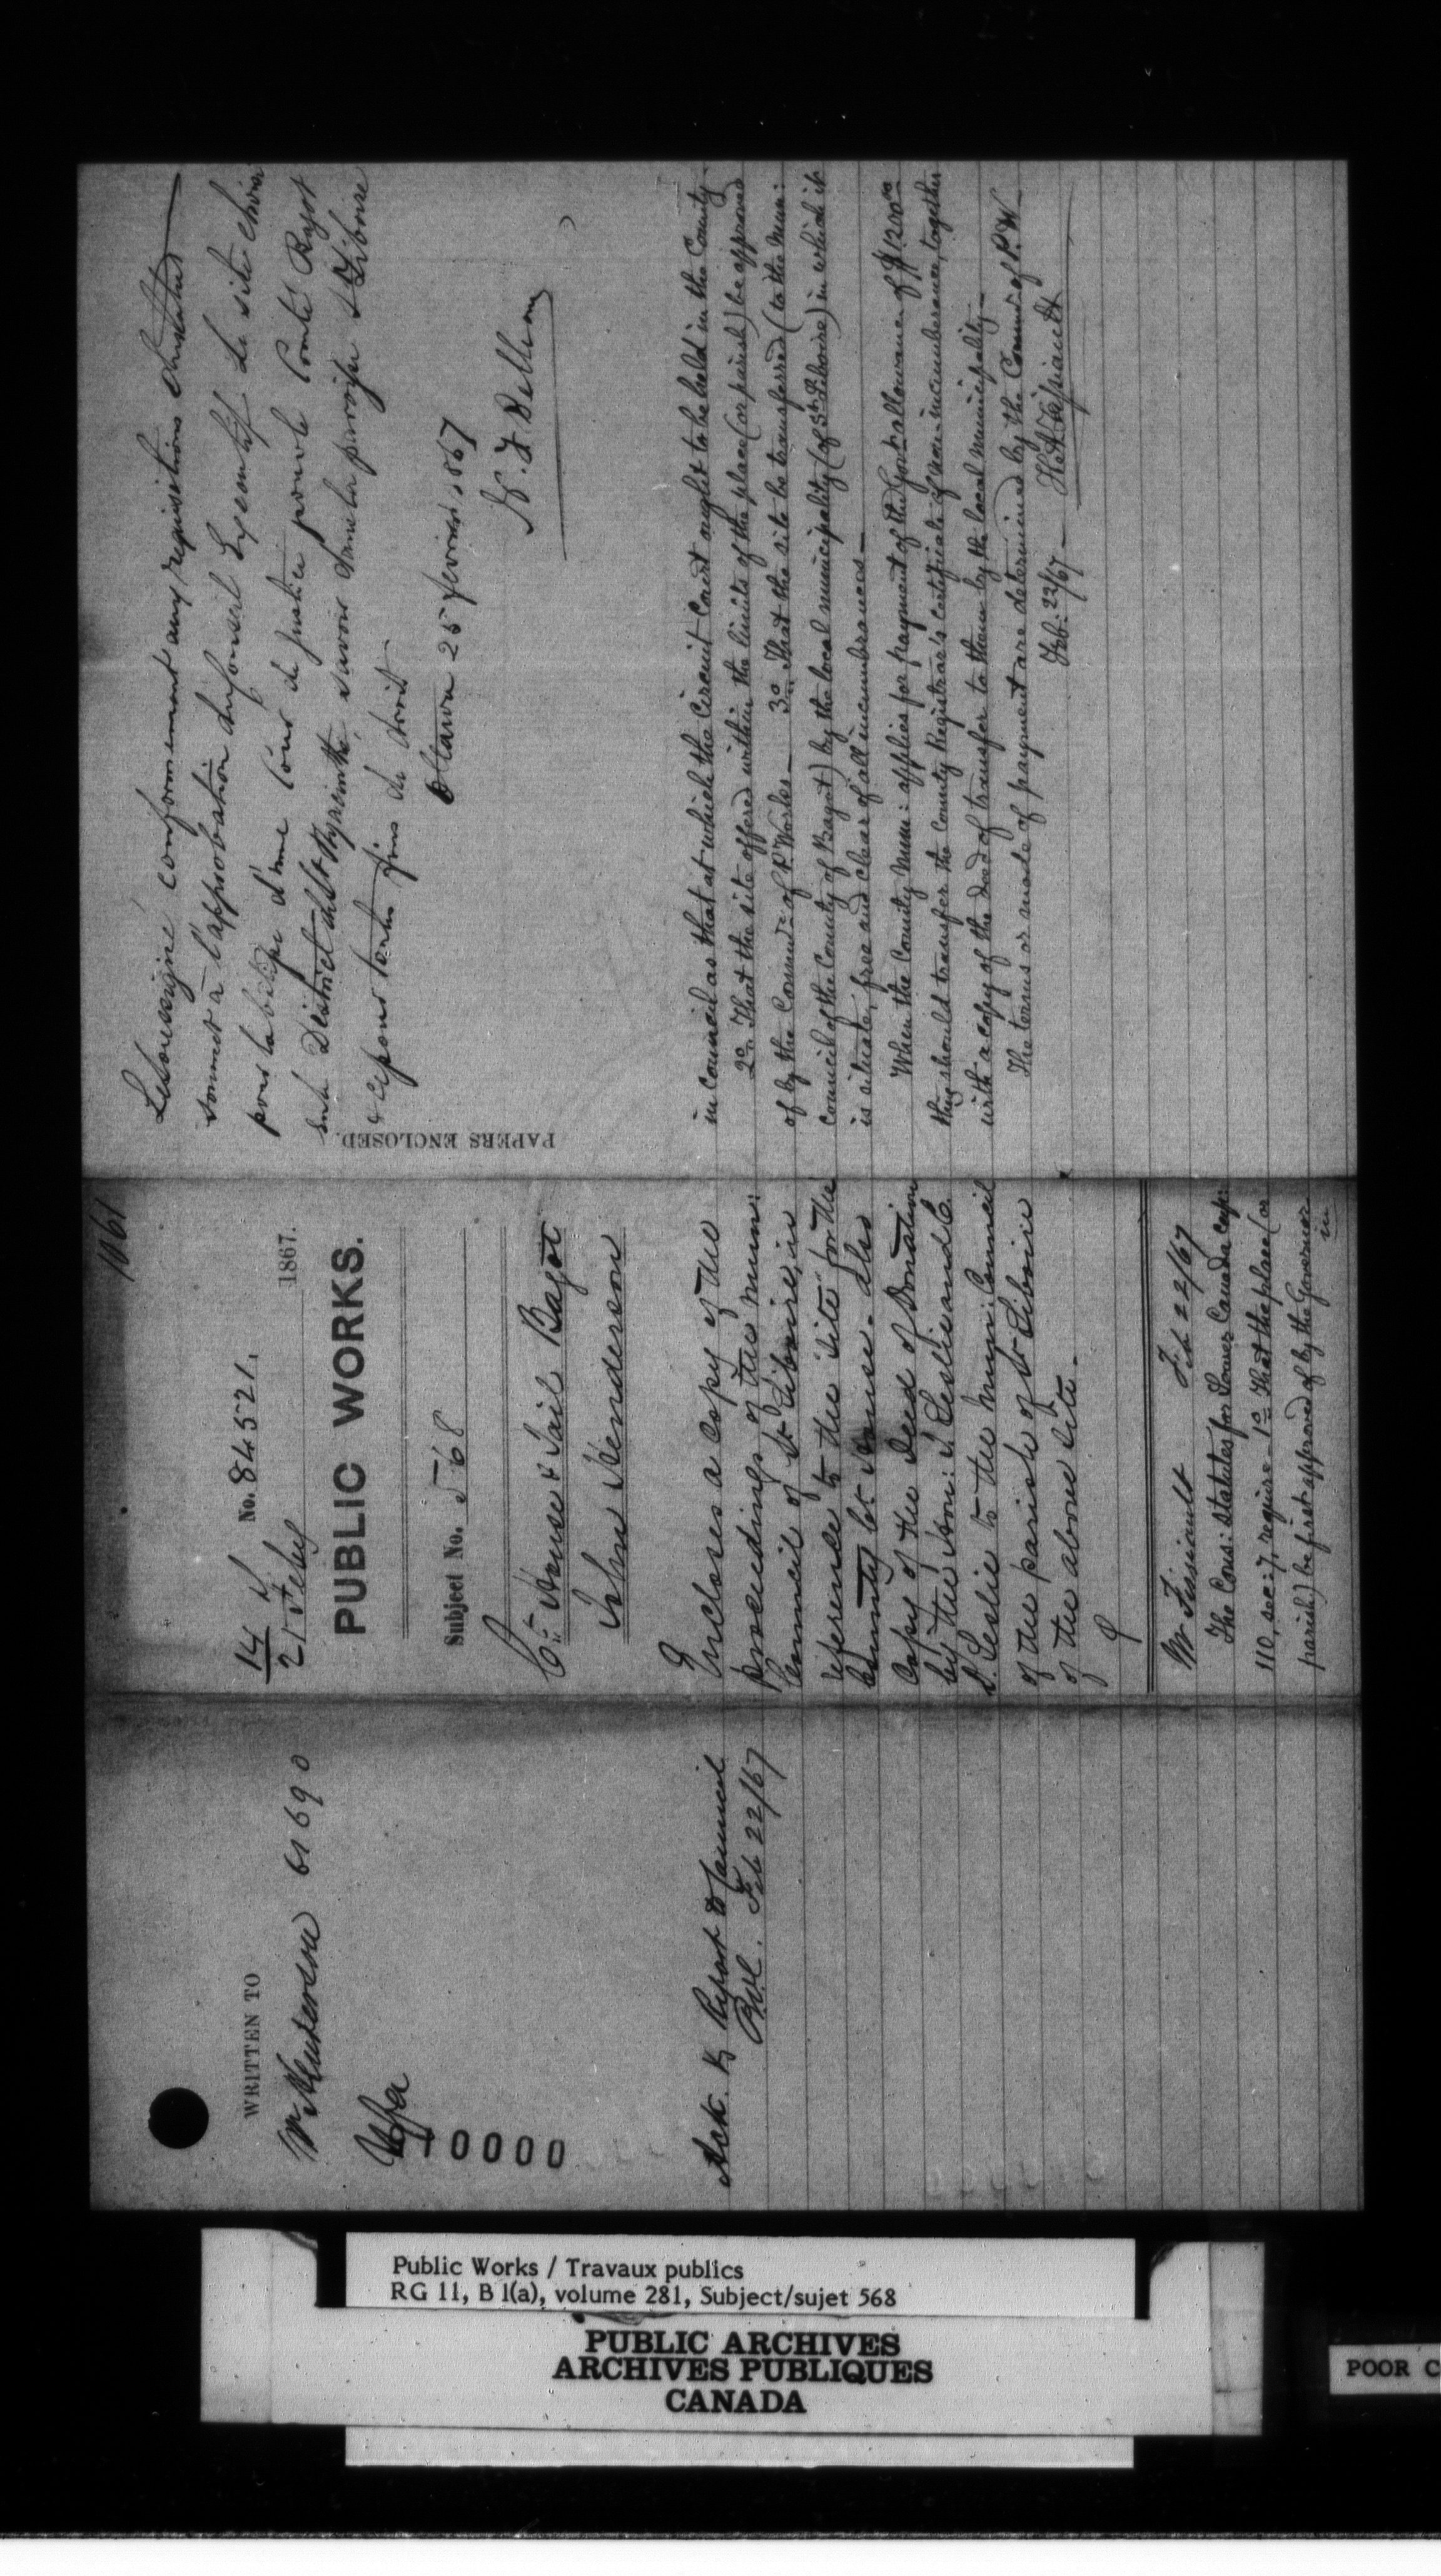 WRITTEN TO
Mr Henderson 61690
10000
Ack. & Report to Council
Feb 22/67
1061
14
21 Feby
No. 84521.
1867.
PUBLIC WORKS.
Subject No. 568
Ct. House & Jail Bagot
John Henderson
Encloses a copy of the
proceedings of the mun:
Council of St Liboire, in
reference to the site for the
County Ct House. Also
Copy of the Deed of Donation
by the Hon: J. Leslie and C.
D. Leslie to the Muni: Council
of the parish of St Liboire
of the above site.
Mr Tessiault Feb 22/67
The Cons: Statutes for Lower Canada cap:
110, sec: 7, require – 1o That the place (or
parish) be first approved of by the Governor
in
in Council as that at which the Circuit Court ought to be held in the County.
2o That the site offered within the limits of the place (or parish) be approved
of by the Commr. of P. Works – 3o That the site be transferred (to the Muni:
Council of the County of Bagot) by the local municipality (of St. Liboire) in which it
is situate, free and clear of all incumbrances –
When the County Muni: applies for payment of the Govt allowance of $1200.00
they should transfer the County Registrar's Certificate of non-incumberance, together
with a copy of the deed of transfer to them by the local municipality –
The terms or mode of payment are determined by the Commr. of P. W –
Feb: 22/67 –
PAPERS ENCLOSED.
Le soussigné conformement aux requisitions du statut
soumet à l'approbation du Conseil Executif le site choisi
pour la bâtisse d'une Cour de justice pour le Comté Bagot
dans le District de St Hyacinthe, savoir dans la paroisse St Liboire
& ce pour toutes fins de droit
Ottawa 25 fevrier 1867
Public Works / Travaux publics
RG 11, B 1(a), volume 281, Subject/sujet 568
PUBLIC ARCHIVES
ARCHIVES PUBLIQUES
CANADA
POOR C